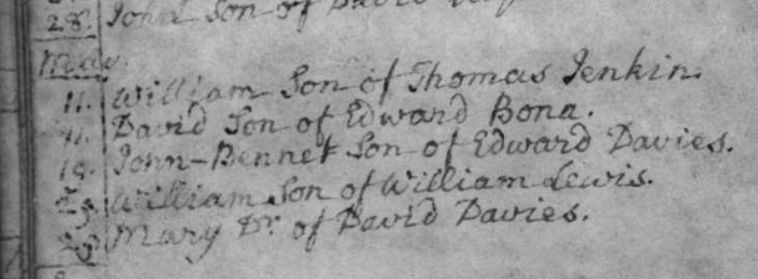 28. John Son of David
May
11. William Son of Thomas Jenkin.
11. David Son of Edward Bona.
18. John-Bennet Son of Edward Davies.
25. William Son of William Lewis.
25 Mary Dr. of David Davies.